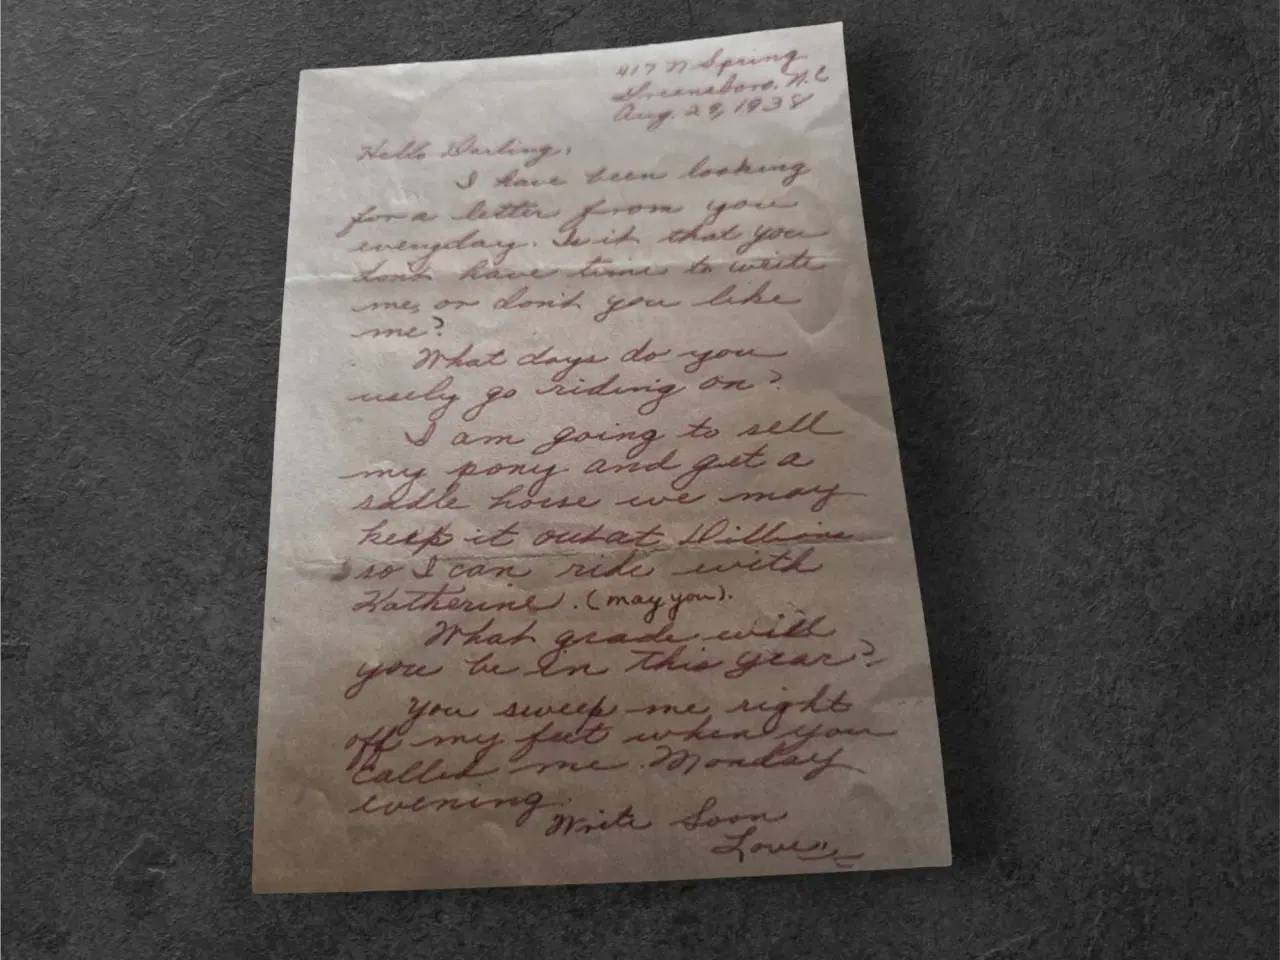 417 N Spring
Greensboro, N.C
Aug. 29, 1938
Hello Darling,
I have been looking
for a letter from you
everyday. Is it that you
dont have time to write
me, or don't you like
me?
What days do you
usely go riding on?
I am going to sell
my pony and get a
sadle horse we may
keep it out at Dillions
so I can ride with
Katherine. (may you).
What grade will
you be in this year?
You sweep me right
off my feet when you
called me Monday
evening.
Write Soon
Love,,